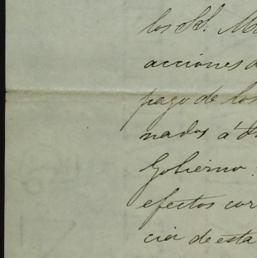 los Sd. M
acciones d
pago de los
nadas á d
Gobierno.
efectos cor
cia de esta